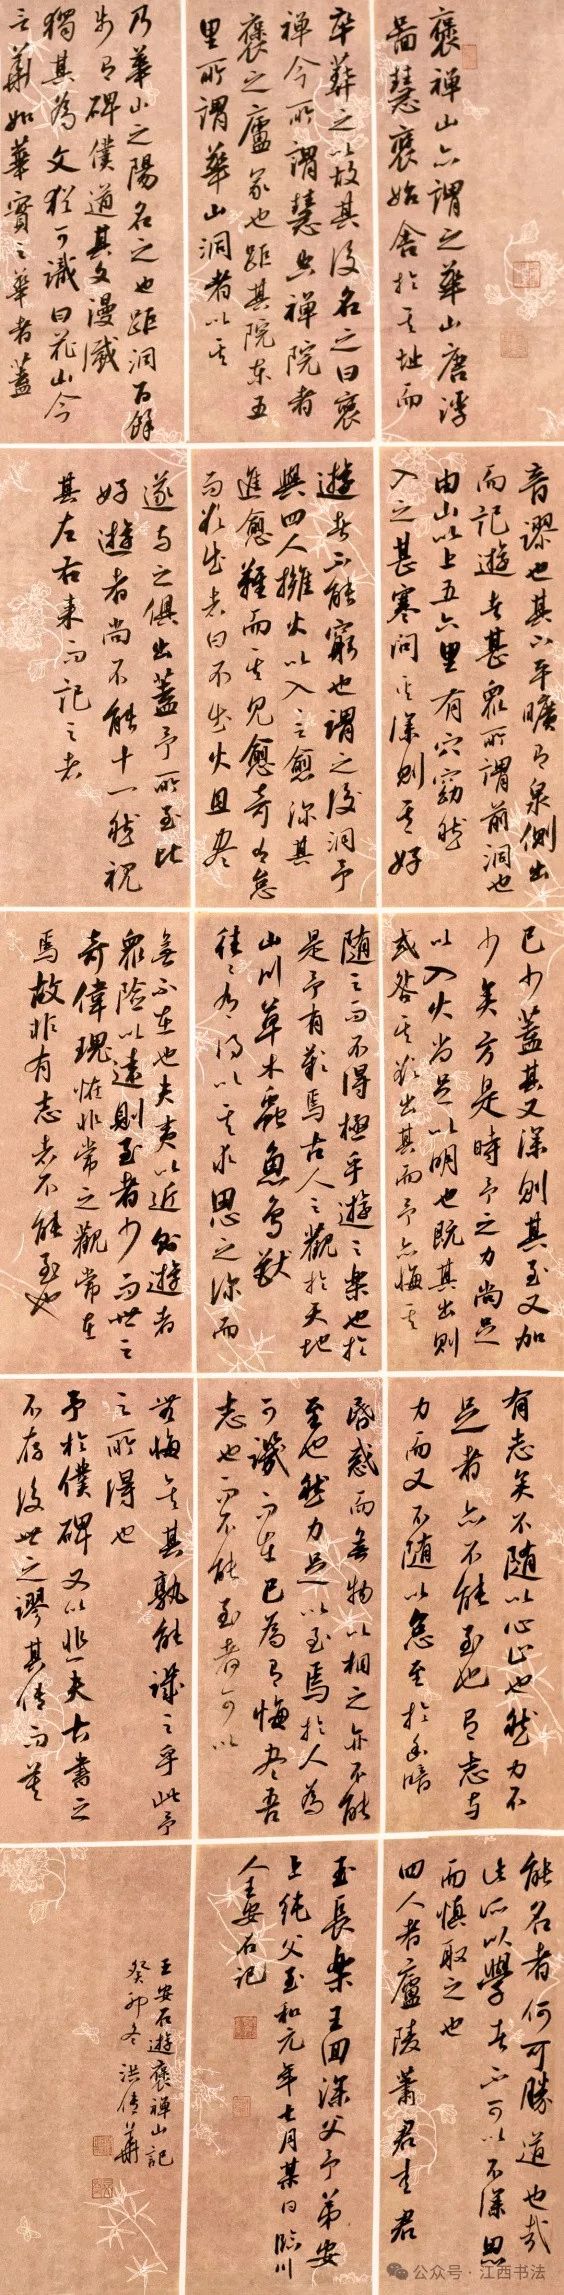 褒禪山亦謂之華山唐浮
圖慧褒始舍於其址而
卒葬之以故其後名之曰褒
禪今所謂慧空禪院者
褒之廬冢也距其院東五
里所謂華山洞者以其
乃華山之陽名之也距洞百餘
步有碑僕道其文漫滅
獨其為文猶可識曰花山今
言華如華實之華者蓋
音謬也其下平曠有泉側出
而記遊者甚眾所謂前洞也
由山以上五六里有穴窈然
入之甚寒問其深則其好
遊者不能窮也謂之後洞予
與四人擁火以入之愈深其
進愈難而其見愈奇有怠
而欲出者曰不出火且盡
遂與之俱出蓋予所至比
好遊者尚不能十一然視
其左右來而記之者
已少蓋其又深則其至又加
少矣方是時予之力尚足
以入火尚足以明也既其出則
或咎其欲出其而予亦悔其
隨之而不得極乎遊之樂也於
是予有歎焉古人之觀於天地
山川草木蟲魚鳥獸
往往有得以其求思之深而
無不在也夫夷以近則遊者
眾險以遠則至者少而世之
奇偉瑰怪非常之觀常在
焉故非有志者不能至也
有志矣不隨以止也然力不
足者亦不能至也有志與
力而又不隨以怠至於幽暗
昏惑而無物以相之亦不能
至也然力足以至焉於人為
可譏而在己為有悔盡吾
志也而不能至者可以
無悔矣其孰能譏之乎此予
之所得也
予於僕碑又以悲夫古書之
不存後世之謬其傳而莫
能名者何可勝道也哉
此所以學者不可以不深思
而慎取之也
四人者廬陵蕭君圭君
玉長樂王回深父予弟安
上純父至和元年七月某日臨川
人王安石記
王安石遊褒禪山記
癸卯冬洪傳華
公众号·江西书法